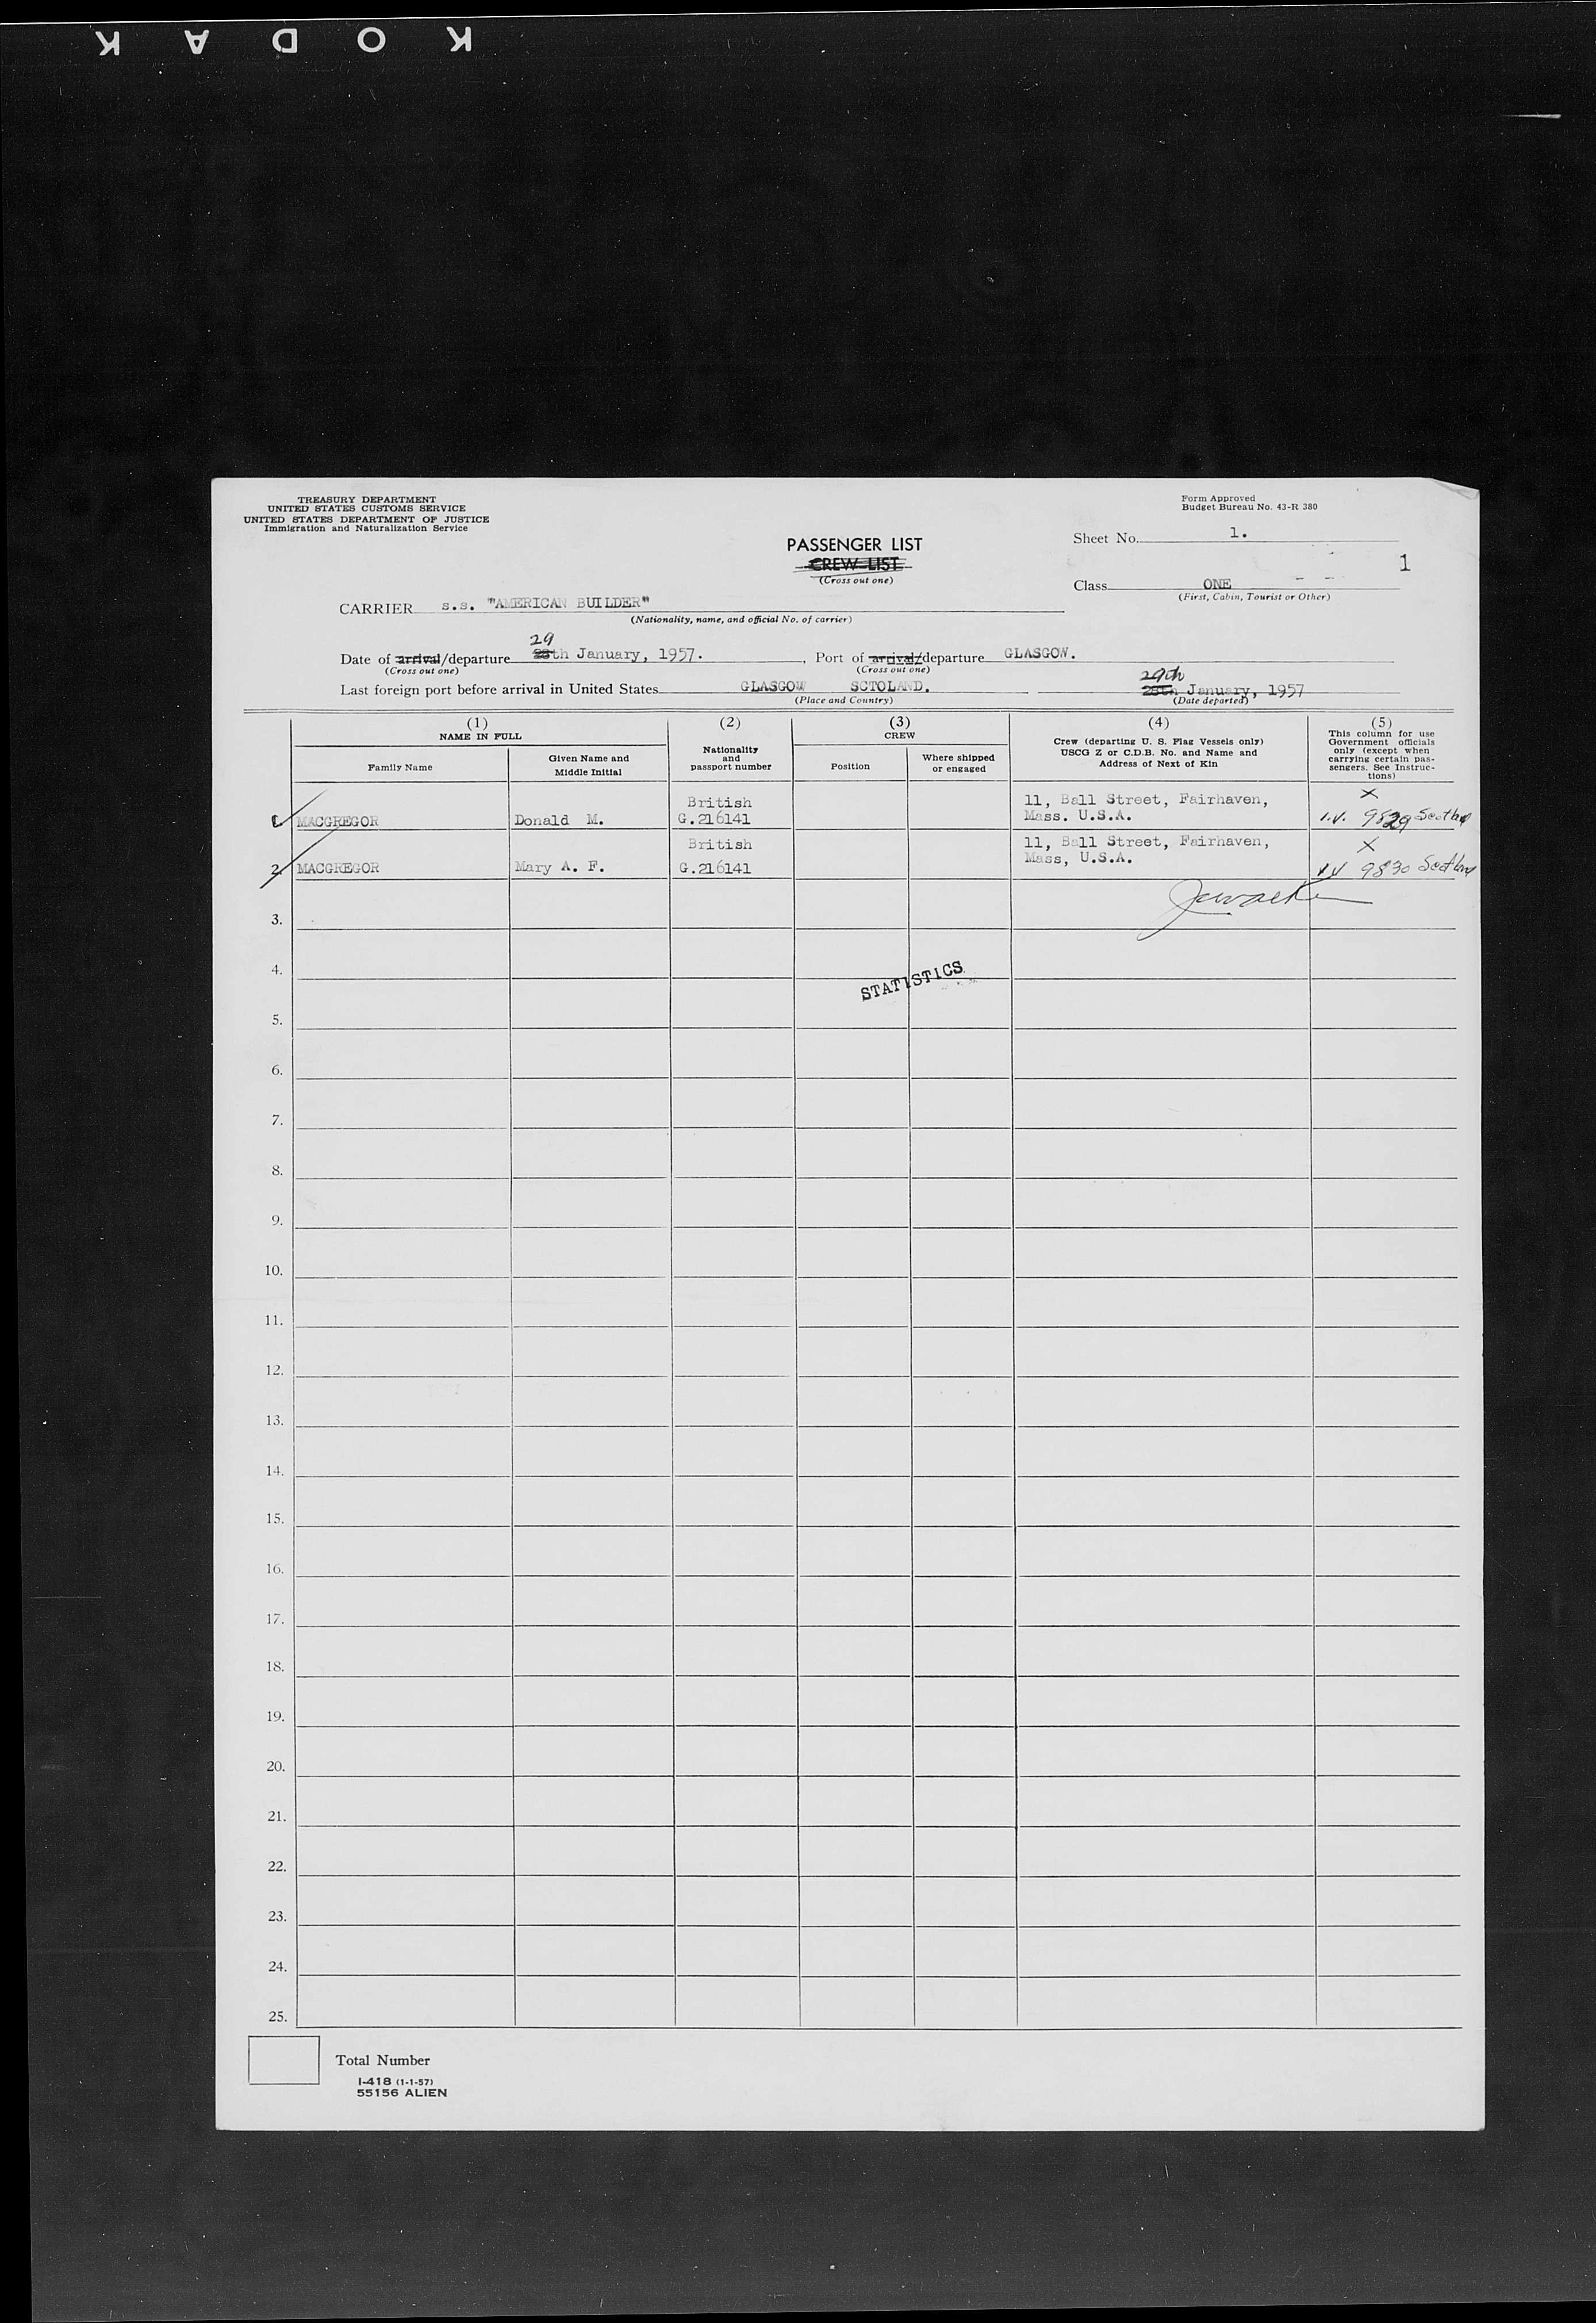 KODAK
TREASURY DEPARTMENT
UNITED STATES CUSTOMS SERVICE
UNITED STATES DEPARTMENT OF JUSTICE
Immigration and Naturalization Service
Form Approved
Budget Bureau No. 43-R 380
Sheet No. 1.
PASSENGER LIST
CREW LIST
(Cross out one)
1
Class ONE
(First, Cabin, Tourist or Other)
CARRIER s.s. "AMERICAN BUILDER"
(Nationality, name, and official No. of carrier)
29
Date of arrival/departure 28th January, 1957. , Port of arrival/departure GLASGOW.
(Cross out one) (Cross out one)
29th
Last foreign port before arrival in United States GLASGOW SCTOLAND. 28th January, 1957
(Place and Country) (Date departed)
(1) (2) (3) (4) (5)
NAME IN FULL
Family Name
Given Name and
Middle Initial
Nationality
and
passport number
CREW
Position
Where shipped
or engaged
Crew (departing U. S. Flag Vessels only)
USCG Z or C.D.B. No. and Name and
Address of Next of Kin
This column for use
Government officials
only (except when
carrying certain pas-
sengers. See Instruc-
tions)
British 11, Ball Street, Fairhaven, X
1. MACGREGOR Donald M. G.216141 Mass. U.S.A. I.V. 9829 Scotland
British 11, Ball Street, Fairhaven, X
2. MACGREGOR Mary A. F. G.216141 Mass, U.S.A. IV 9830 Scotland
3.
4.
STATISTICS
5.
6.
7.
8.
9.
10.
11.
12.
13.
14.
15.
16.
17.
18.
19.
20.
21.
22.
23.
24.
25.
Total Number
I-418 (1-1-57)
55156 ALIEN